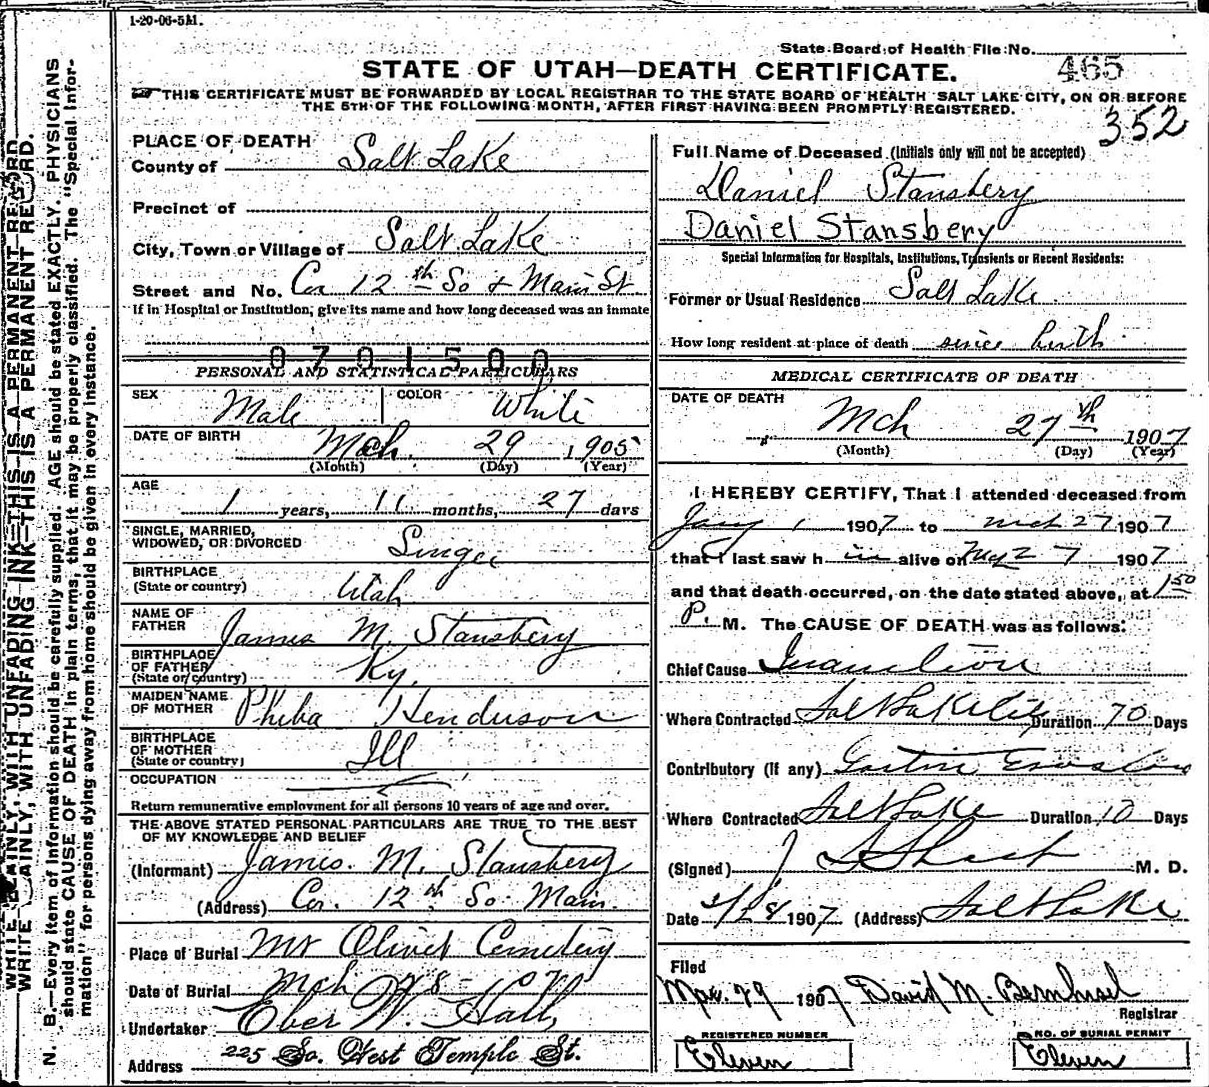 1-20-06-5M.
State Board of Health File No.
465
STATE OF UTAH—DEATH CERTIFICATE.
THIS CERTIFICATE MUST BE FORWARDED BY LOCAL REGISTRAR TO THE STATE BOARD OF HEALTH SALT LAKE CITY, ON OR BEFORE
THE 5TH OF THE FOLLOWING MONTH, AFTER FIRST HAVING BEEN PROMPTLY REGISTERED.
352
WRITE PLAINLY, WITH UNFADING INK—THIS IS A PERMANENT RECORD.
WRITE PLAINLY, WITH UNFADING INK—THIS IS A PERMANENT RECORD.
N. B.—Every item of information should be carefully supplied. AGE should be stated EXACTLY. PHYSICIANS
should state CAUSE OF DEATH in plain terms, that it may be properly classified. The "Special Infor-
mation" for persons dying away from home should be given in every instance.
PLACE OF DEATH
County of Salt Lake
Precinct of
City, Town or Village of Salt Lake
Street and No. Cor 12th So & Main St
If in Hospital or Institution, give its name and how long deceased was an inmate
0701500
PERSONAL AND STATISTICAL PARTICULARS
SEX Male COLOR White
DATE OF BIRTH Mch. 29 1905
(Month) (Day) (Year)
AGE
1 years, 11 months, 27 days
SINGLE, MARRIED,
WIDOWED, OR DIVORCED Single
BIRTHPLACE
(State or country) Utah
NAME OF
FATHER James M. Stansbery
BIRTHPLACE
OF FATHER
(State or country) Ky.
MAIDEN NAME
OF MOTHER Pheba Henderson
BIRTHPLACE
OF MOTHER
(State or country) Ill
OCCUPATION
Return remunerative employment for all persons 10 years of age and over.
THE ABOVE STATED PERSONAL PARTICULARS ARE TRUE TO THE BEST
OF MY KNOWLEDGE AND BELIEF
(Informant) James. M. Stansbery
(Address) Cor. 12th So. Main.
Place of Burial Mt Olivet Cemetery
Date of Burial Mch 28 - 1907
Undertaker Eber W. Hall
Address 225 So. West Temple St.
Full Name of Deceased (Initials only will not be accepted)
Daniel Stansbery
Daniel Stansbery
Special Information for Hospitals, Institutions, Transients or Recent Residents:
Former or Usual Residence Salt Lake
How long resident at place of death since birth
MEDICAL CERTIFICATE OF DEATH
DATE OF DEATH
Mch 27th 1907
(Month) (Day) (Year)
I HEREBY CERTIFY, That I attended deceased from
Jany 1 1907 to Mch 27 1907
that I last saw h im alive on 27 1907
and that death occurred, on the date stated above, at 1 50
P. M. The CAUSE OF DEATH was as follows:
Chief Cause Inanition
Where Contracted Salt Lake City Duration 70 Days
Contributory (If any)
Where Contracted Salt Lake Duration 10 Days
(Signed) M. D.
Date 1907 (Address) Salt Lake
Filed
Mar. 29 1907 David M. Bernhisel
Registrar
REGISTERED NUMBER
Eleven
NO. OF BURIAL PERMIT
Eleven